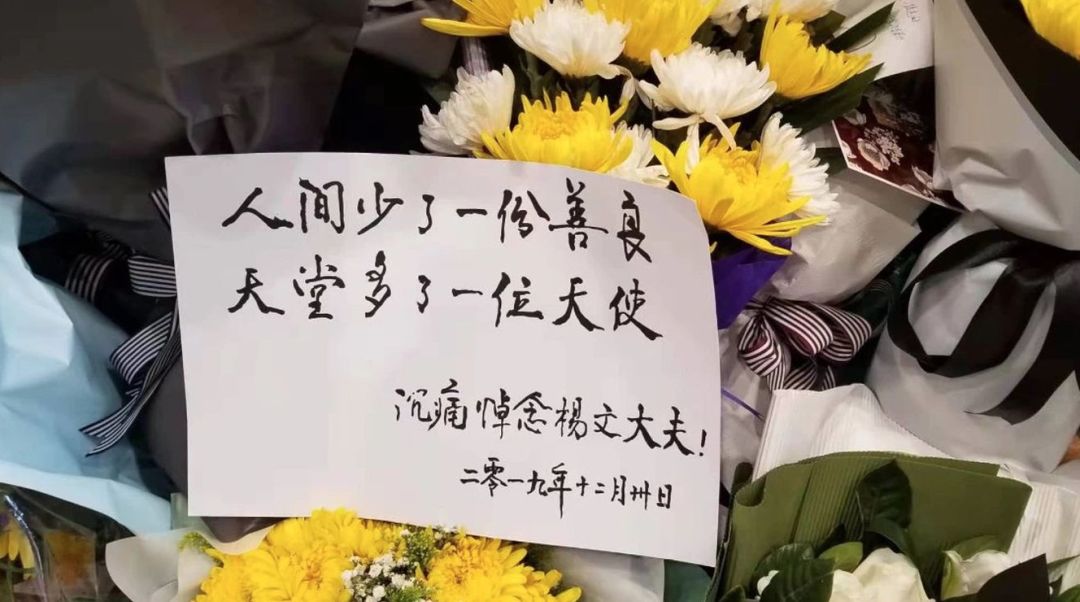 人间少了一份善良
天堂多了一位天使
沉痛悼念杨文大夫!
二零一九年十二月卅日